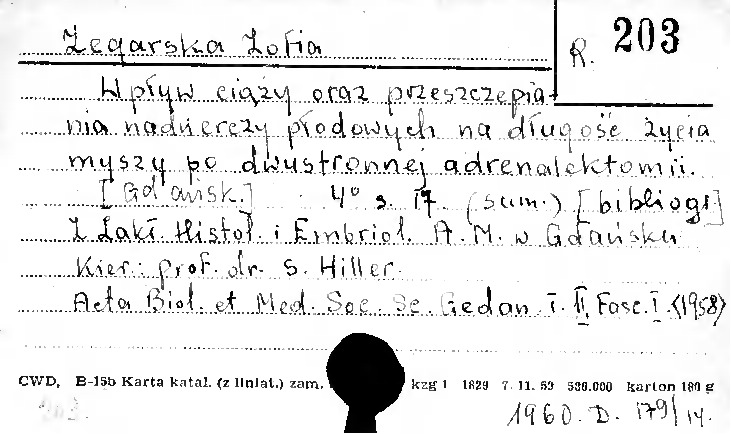 Żegarska Zofia
R. 203
Wpływ ciąży oraz przeszczepia-
nia nadnerczy płodowych na długość życia
myszy po dwustronnej adrenalektomii.
[Gdańsk.] 4° s. 17. (sum.) [bibliogr]
Z Zakł. Histol. i Embriol. A.M. w Gdańsku
Kier.: prof. dr. S. Hiller.
Acta Biol. et Med. Soc. Sc. Gedan. t. II, Fasc. I. (1958)
CWD, B-15b Karta katal. (z liniat.) zam. kzg 1 1829 7. 11. 59 536.000 karton 180 g
203.
1960. D. 179/14.